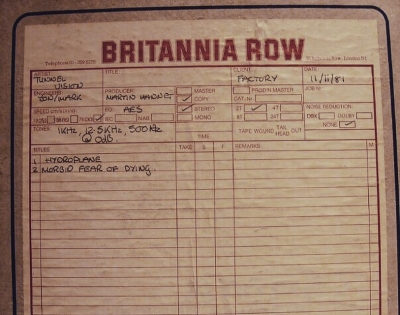 BRITANNIA ROW
ARTIST: TITLE: CLIENT: DATE:
TUNNEL VISION FACTORY 11/11/81
ENGINEERS: PRODUCER: MASTER JOB Nr:
JON/MARK MARTIN HANNET COPY
PROD'N MASTER
CAT. Nr:
EQ: AES STEREO 2T 4T NOISE REDUCTION:
IEC NAB MONO DBX DOLBY
NONE
TONES: 1KHz, 12.5KHz, 500Hz
TIME TAPE WOUND TAIL HEAD OUT
TITLES TAKE S F REMARKS M
1 HYDROPLANE
2 MORBID FEAR OF DYING